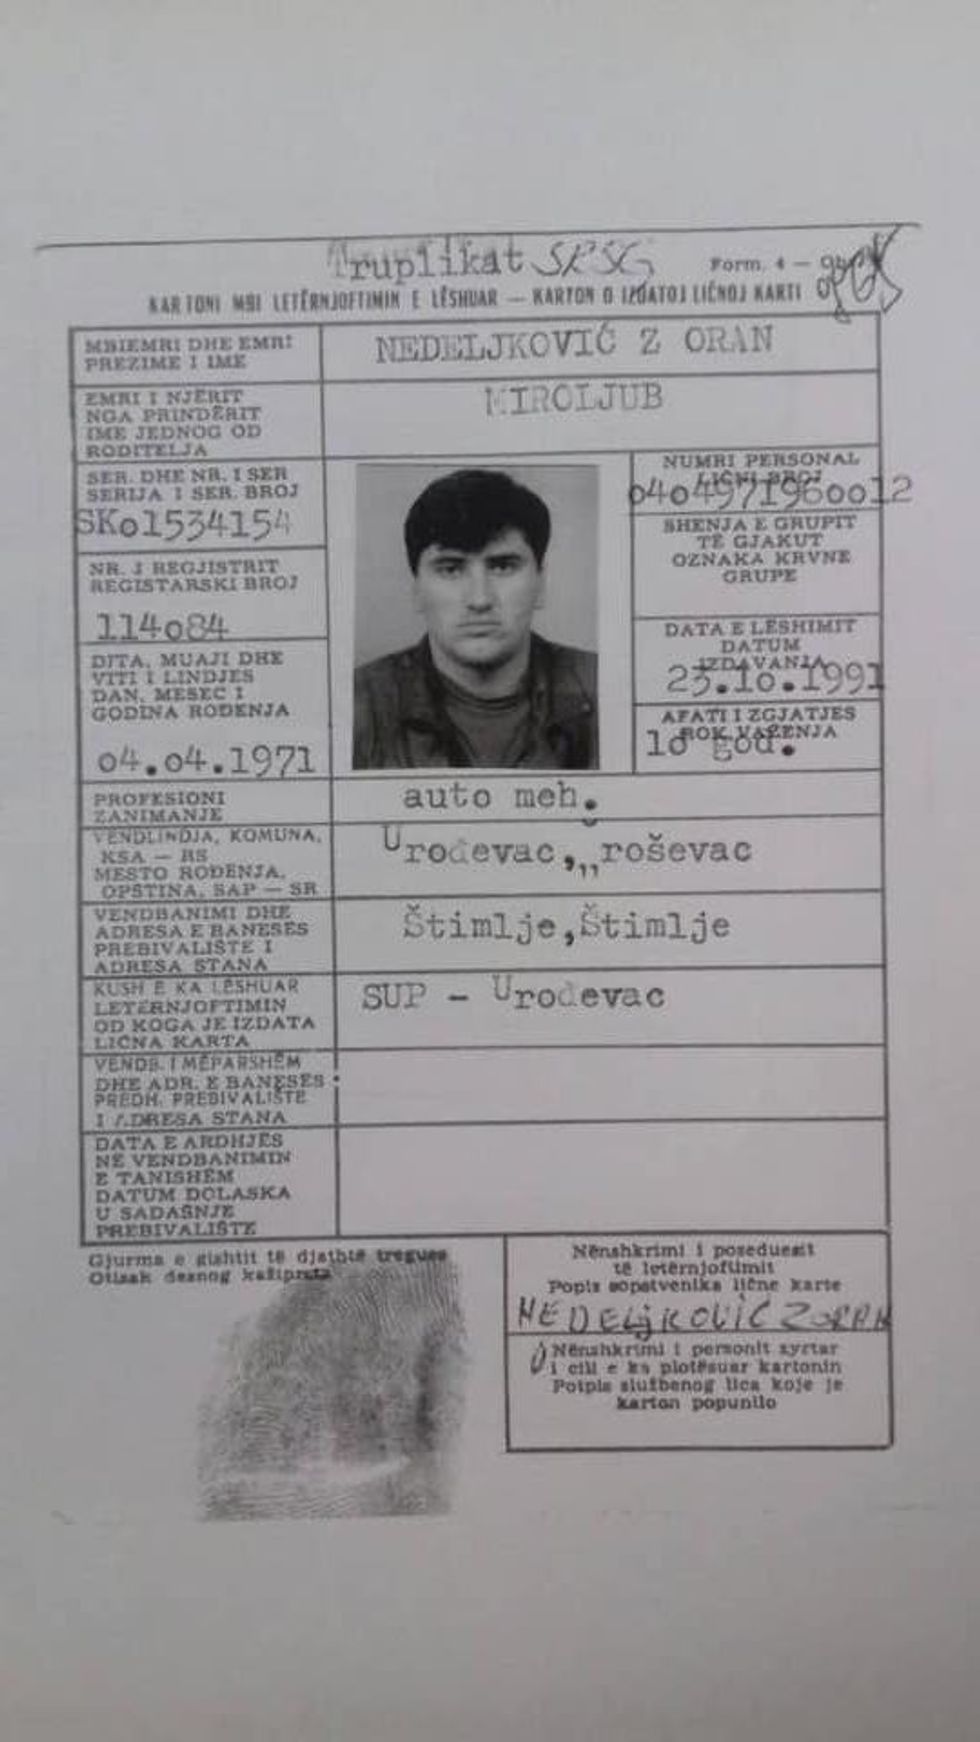 Truplikat SRSG Form. 4 —
KARTONI MBI LETËRNJOFTIMIN E LËSHUAR — KARTON O IZDATOJ LIČNOJ KARTI
MBIEMRI DHE EMRI
PREZIME I IME
NEDELJKOVIĆ Z ORAN
EMRI I NJËRIT
NGA PRINDËRIT
IME JEDNOG OD
RODITELJA
MIROLJUB
SER. DHE NR. I SER
SERIJA I SER. BROJ
SKo1534154
NR. I REGJISTRIT
REGISTARSKI BROJ
114o84
DITA, MUAJI DHE
VITI I LINDJES
DAN, MESEC I
GODINA ROĐENJA
o4.o4.1971
NUMRI PERSONAL
LIČNI BROJ
o4o4971960012
SHENJA E GRUPIT
TË GJAKUT
OZNAKA KRVNE
GRUPE
DATA E LËSHIMIT
DATUM
IZDAVANJA
23.1o.1991
AFATI I ZGJATJES
ROK VAŽENJA
1o god.
PROFESIONI
ZANIMANJE
auto meh.
VENDLINDJA, KOMUNA,
KSA — RS
MESTO ROĐENJA,
OPŠTINA, SAP — SR
Uroševac,,,roševac
VENDBANIMI DHE
ADRESA E BANESËS
PREBIVALIŠTE I
ADRESA STANA
Štimlje,Štimlje
KUSH E KA LËSHUAR
LETËRNJOFTIMIN
OD KOGA JE IZDATA
LIČNA KARTA
SUP - Uroševac
VENDB. I MËPARSHËM
DHE ADR. E BANESËS
PREDH. PREBIVALIŠTE
I ADRESA STANA
DATA E ARDHJES
NË VENDBANIMIN
E TANISHËM
DATUM DOLASKA
U SADAŠNJE
PREBIVALIŠTE
Gjurma e gishtit të djathtë tregues
Otisak desnog kažiprsta
Nënshkrimi i poseduesit
të letërnjoftimit
Popis sopstvenika lične karte
NEDELJKOVIĆ ZORAN
Nënshkrimi i personit zyrtar
i cili e ka plotësuar kartonin
Potpis službenog lica koje je
karton popunilo